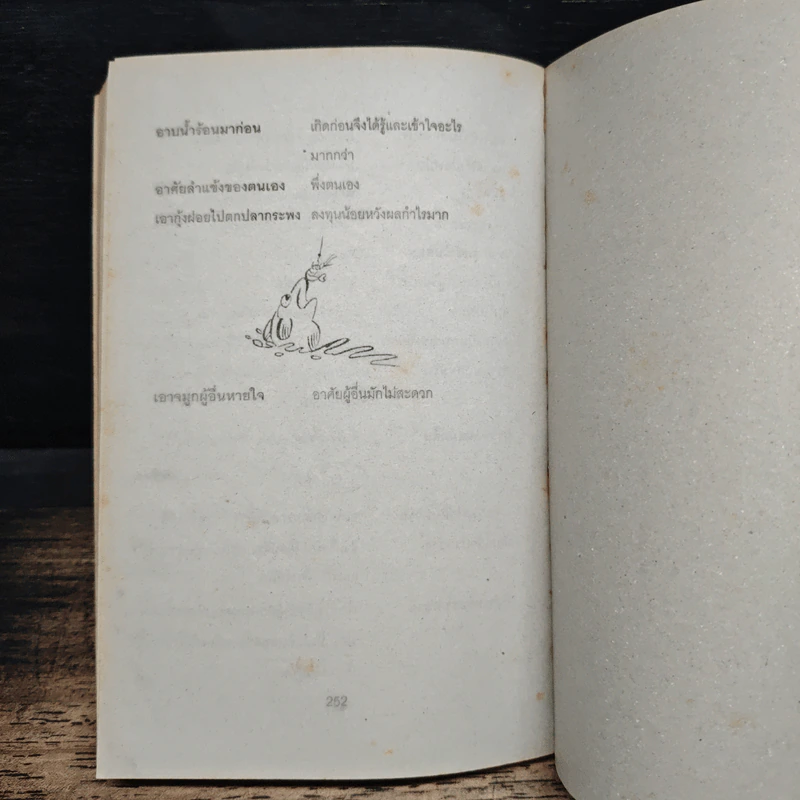 อาบน้ำร้อนมาก่อน เกิดก่อนจึงได้รู้และเข้าใจอะไร
มากกว่า
อาศัยลำแข้งของตนเอง พึ่งตนเอง
เอากุ้งฝอยไปตกปลากระพง ลงทุนน้อยหวังผลกำไรมาก
เอาจมูกผู้อื่นหายใจ อาศัยผู้อื่นมักไม่สะดวก
252